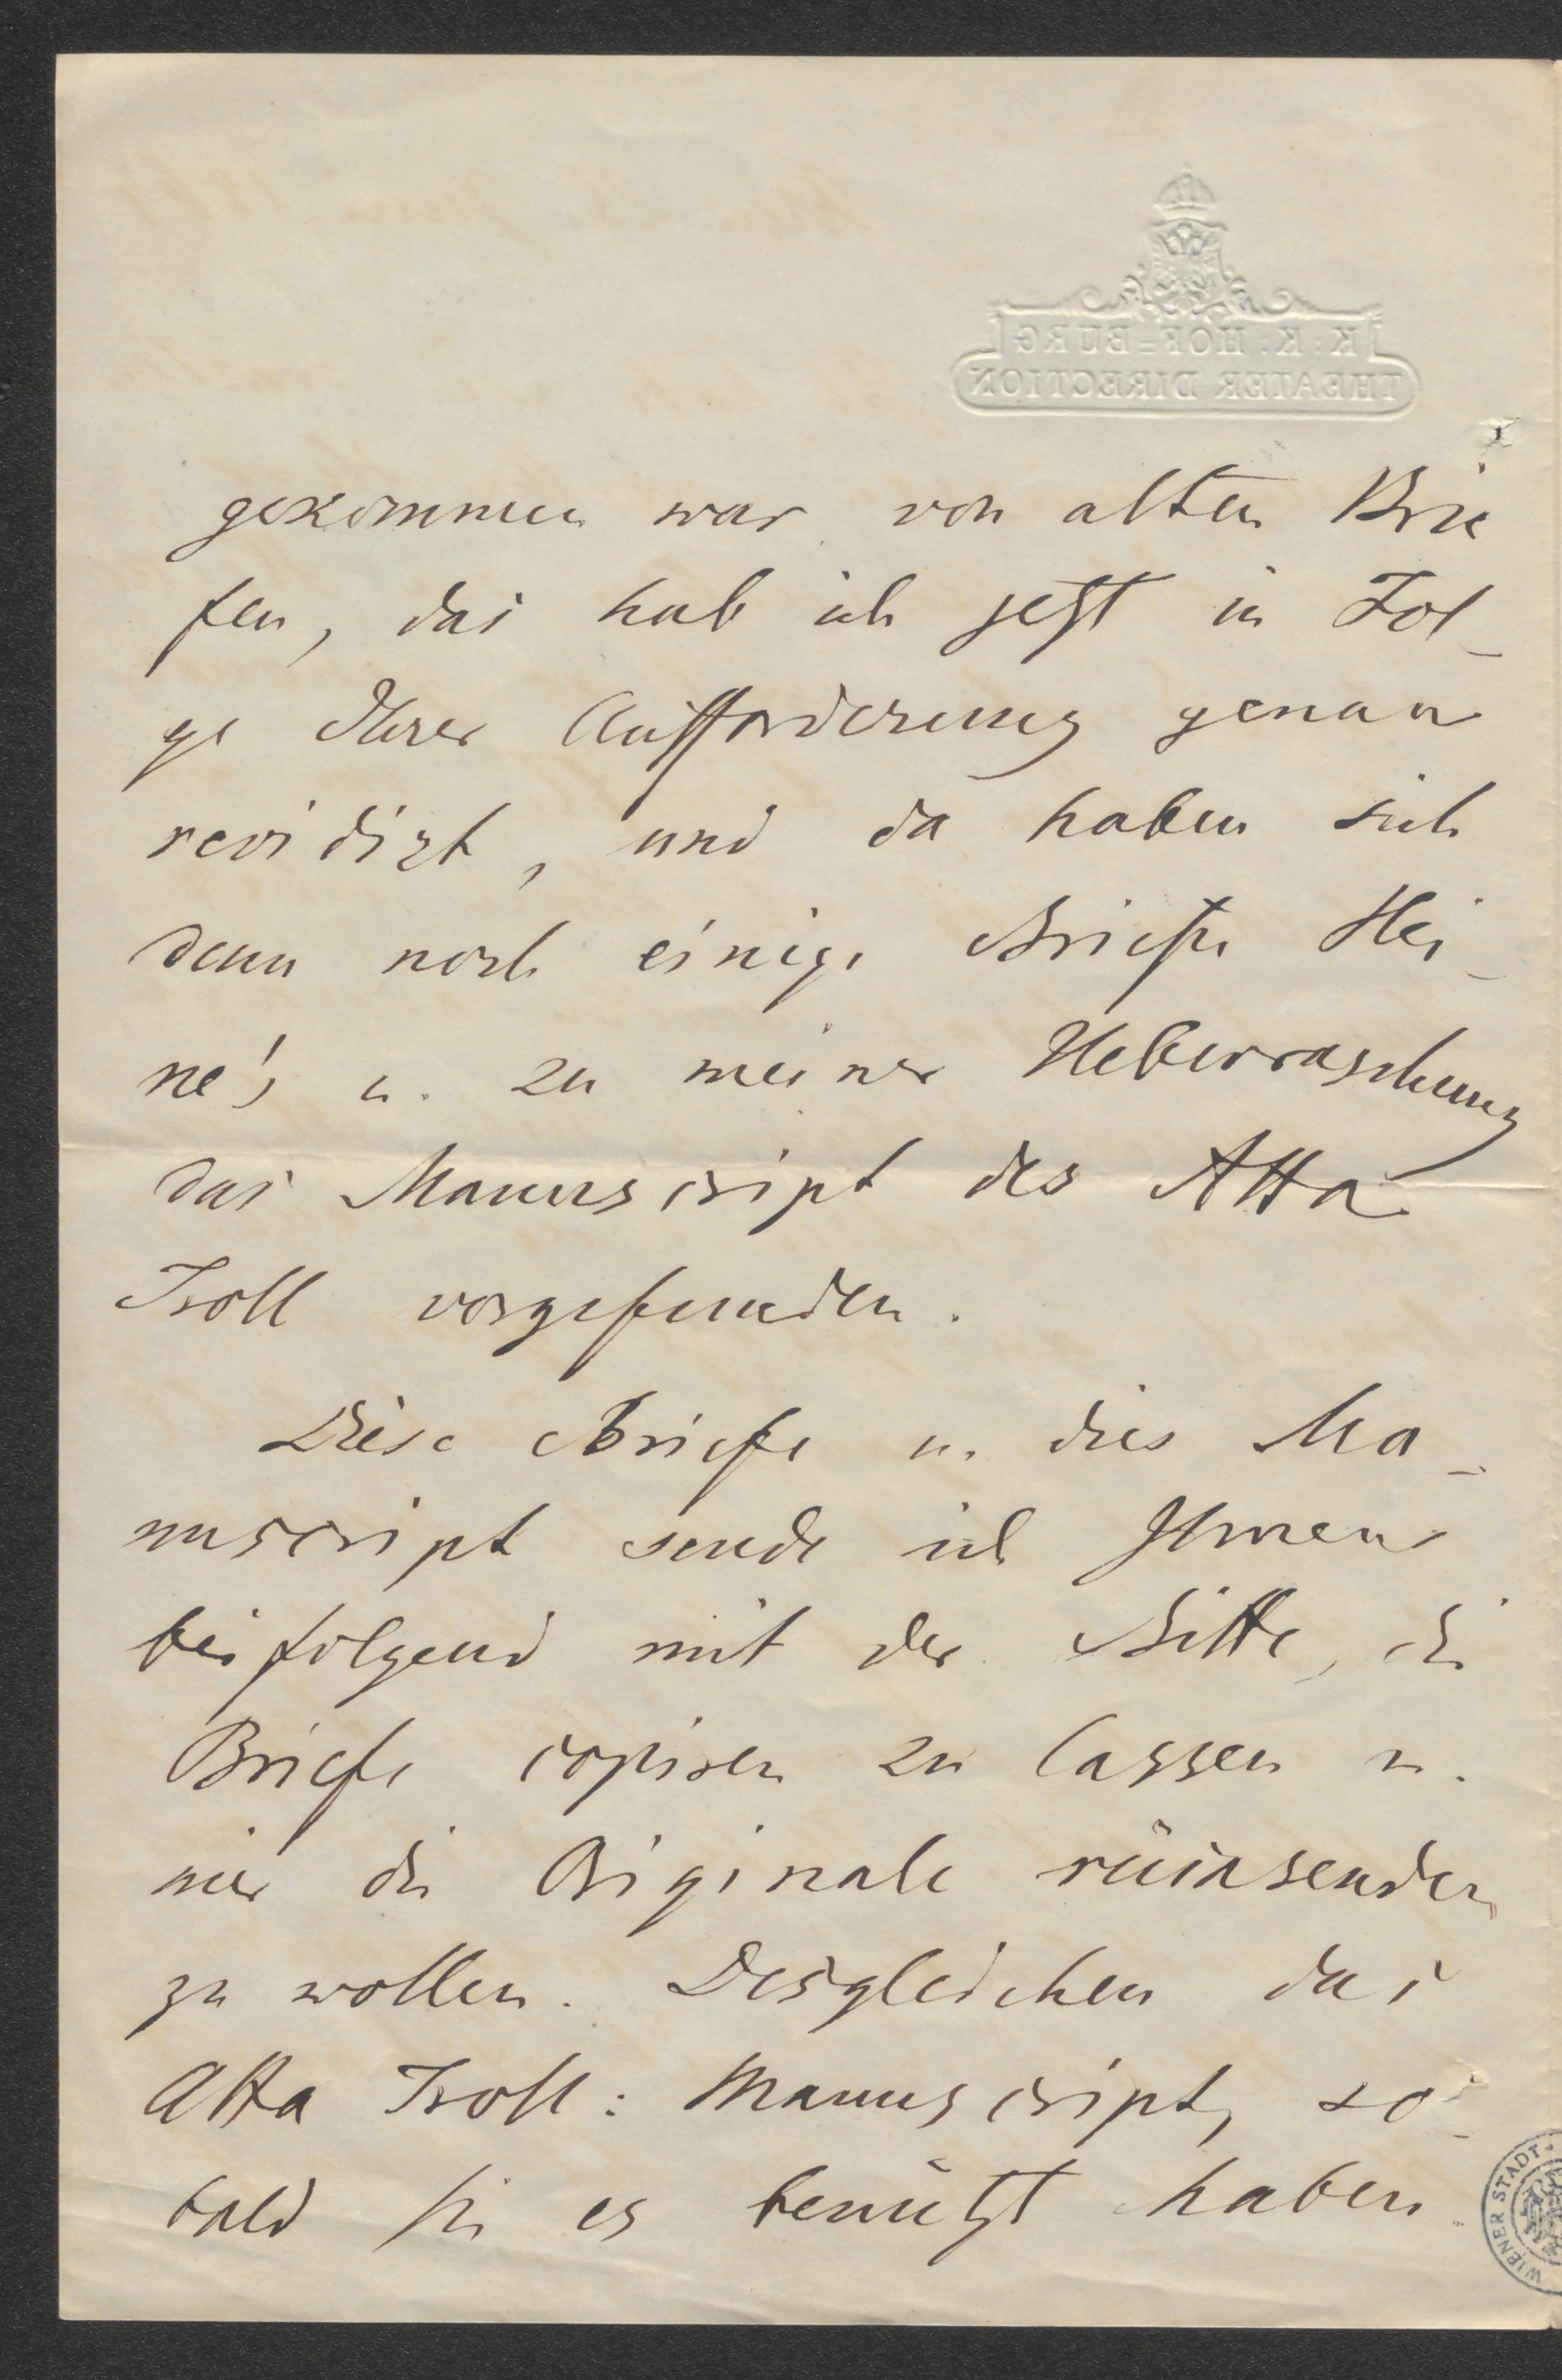 K: K: HOF-BURG
THEATER DIRECTION
gekommen war von alten Brie
fen, das hab ich jetzt in Fol-
ge Ihrer Aufforderung genau
revidirt, und da haben sich
denn noch einige Briefe Hei-
ne's u. zu meiner Ueberraschung
das Manuscript des Atta
Troll vorgefunden.
Diese Briefe u. dies Ma-
nuscript sende ich Ihnen
beifolgend mit der Bitte, die
Briefe copiren zu lassen u.
mir die Originale rücksenden
zu wollen. Desgleichen das
Atta Troll: Manuscript, so-
bald Sie es benützt haben.
WIENER STADT-